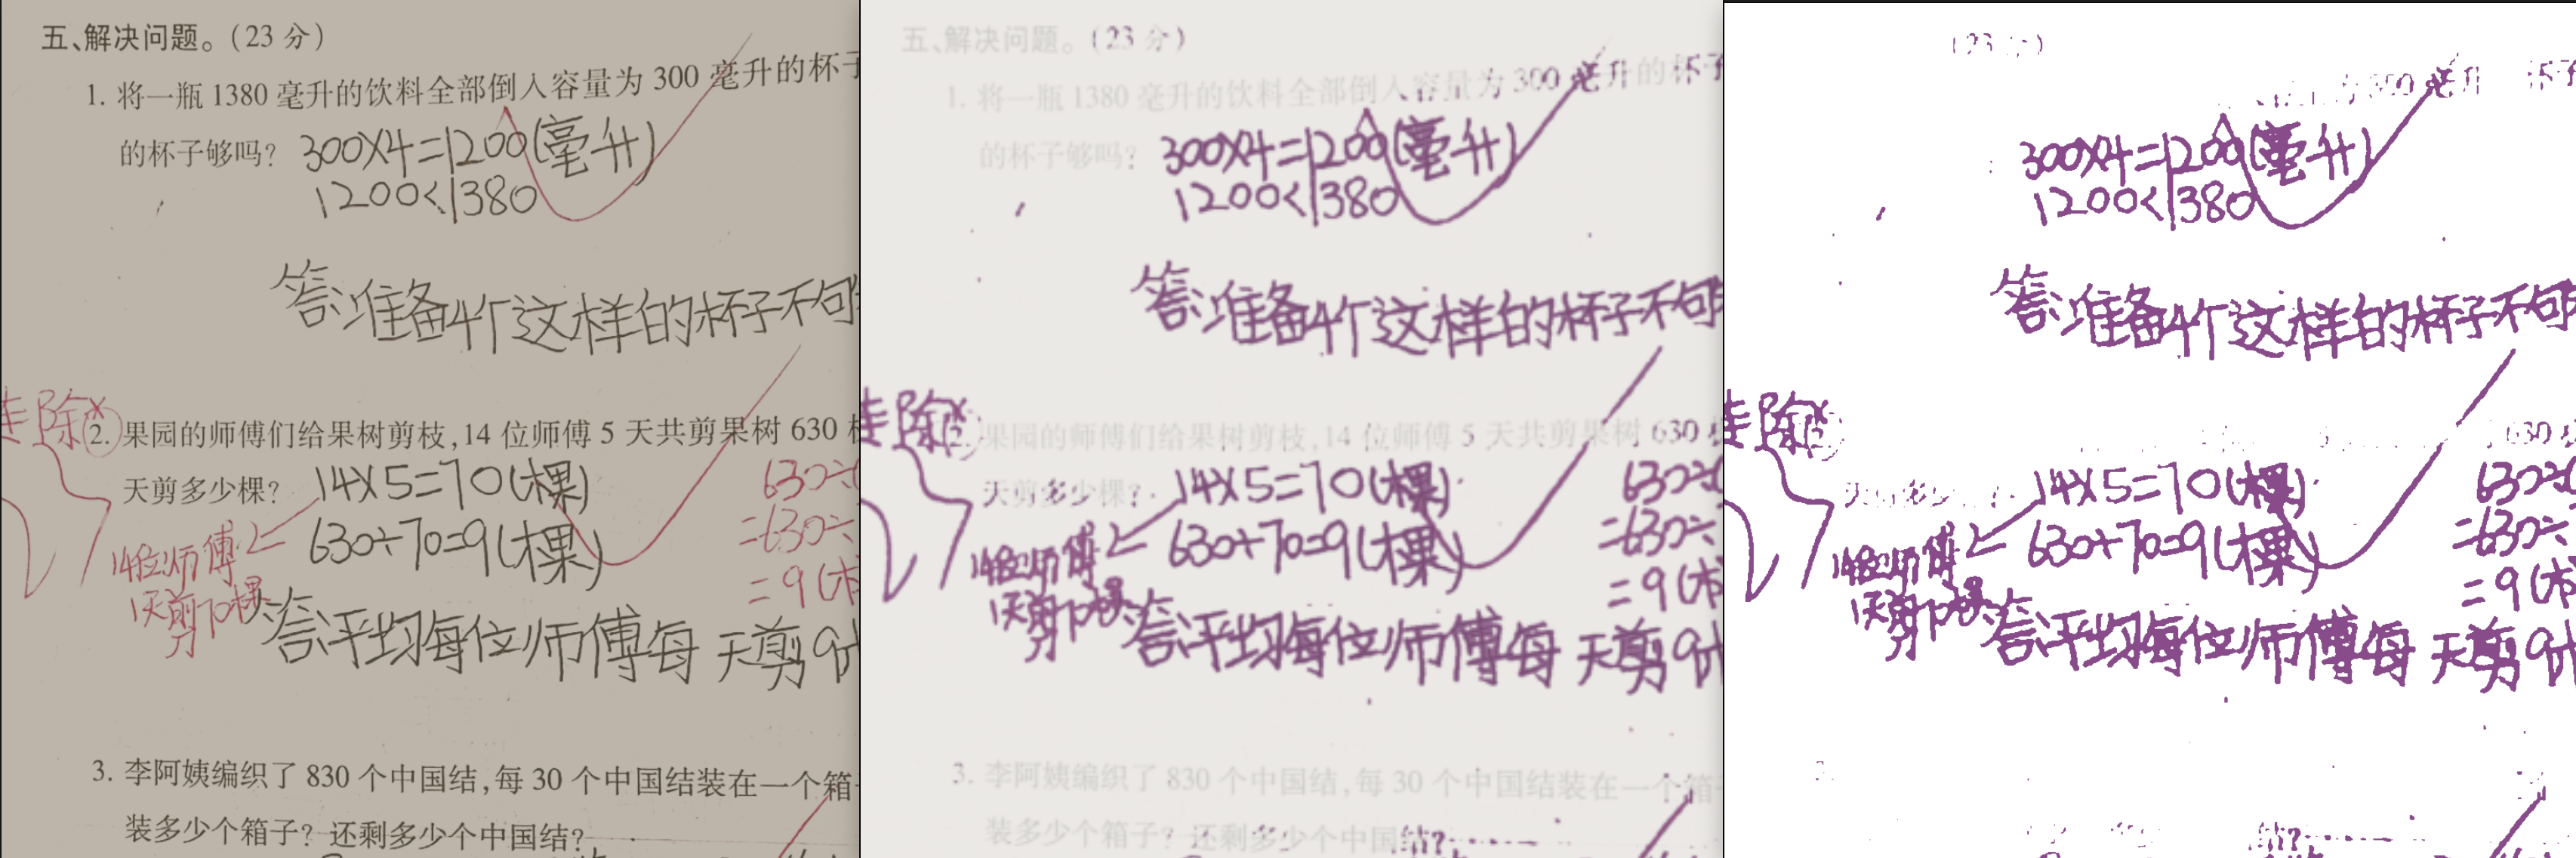 五、解决问题。(23 分)
1. 将一瓶 1380 毫升的饮料全部倒入容量为 300 毫升的杯子
的杯子够吗? 300×4=1200(毫升)
1200<1380
答:准备4个这样的杯子不够
走除
2. 果园的师傅们给果树剪枝,14 位师傅 5 天共剪果树 630 棵
天剪多少棵? 14×5=70(棵)
630÷(
630÷70=9(棵)
=630÷
14位师傅
1天剪70棵
=9(棵
答:平均每位师傅每天剪9棵
3. 李阿姨编织了 830 个中国结,每 30 个中国结装在一个箱子
装多少个箱子? 还剩多少个中国结?
(23 分)
五、解决问题。(23 分)
1. 将一瓶 1380 毫升的饮料全部倒入容量为 300 毫升的杯子
的杯子够吗? 300×4=1200(毫升)
1200<1380
答:准备4个这样的杯子不够
走除
2. 果园的师傅们给果树剪枝,14 位师傅 5 天共剪果树 630 棵
天剪多少棵? 14×5=70(棵)
630÷(
630÷70=9(棵)
=630÷
14位师傅
1天剪70棵
=9(棵
答:平均每位师傅每天剪9棵
3. 李阿姨编织了 830 个中国结,每 30 个中国结装在一个箱子
装多少个箱子? 还剩多少个中国结?
300×4=1200(毫升)
1200<1380
答:准备4个这样的杯子不够
走除
630
14×5=70(棵)
630÷(
630÷70=9(棵)
=630÷
14位师傅
1天剪70棵
=9(棵
答:平均每位师傅每天剪9棵